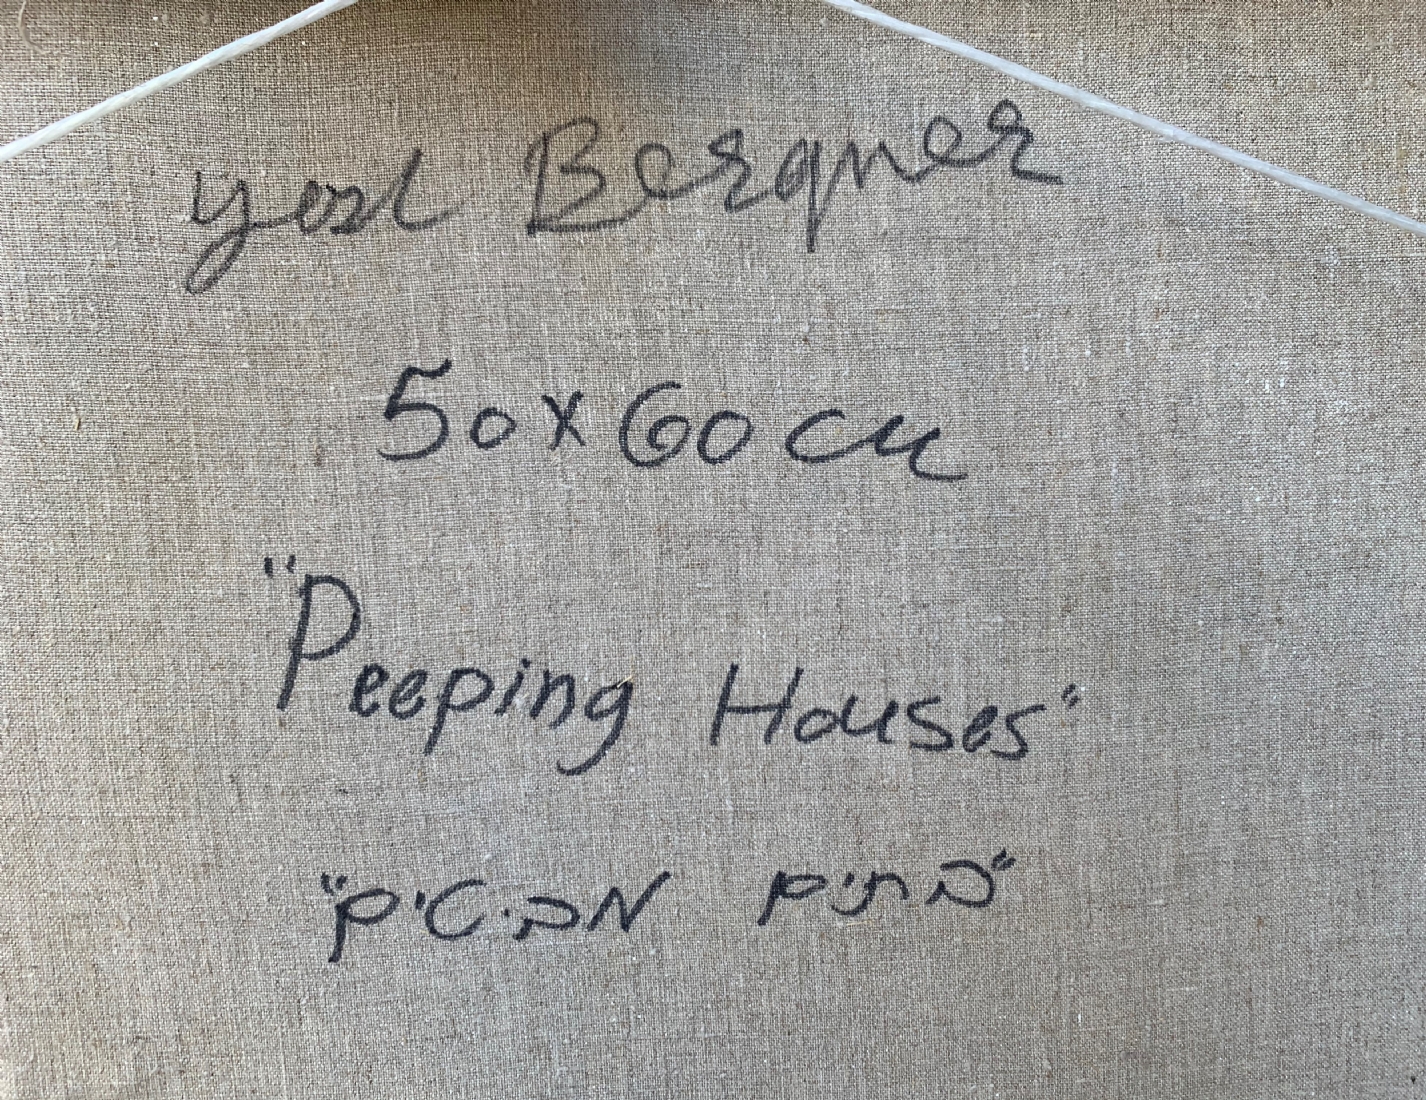 Yosl Bergner
50x60cm
"Peeping Houses"
"בתים מביטים"